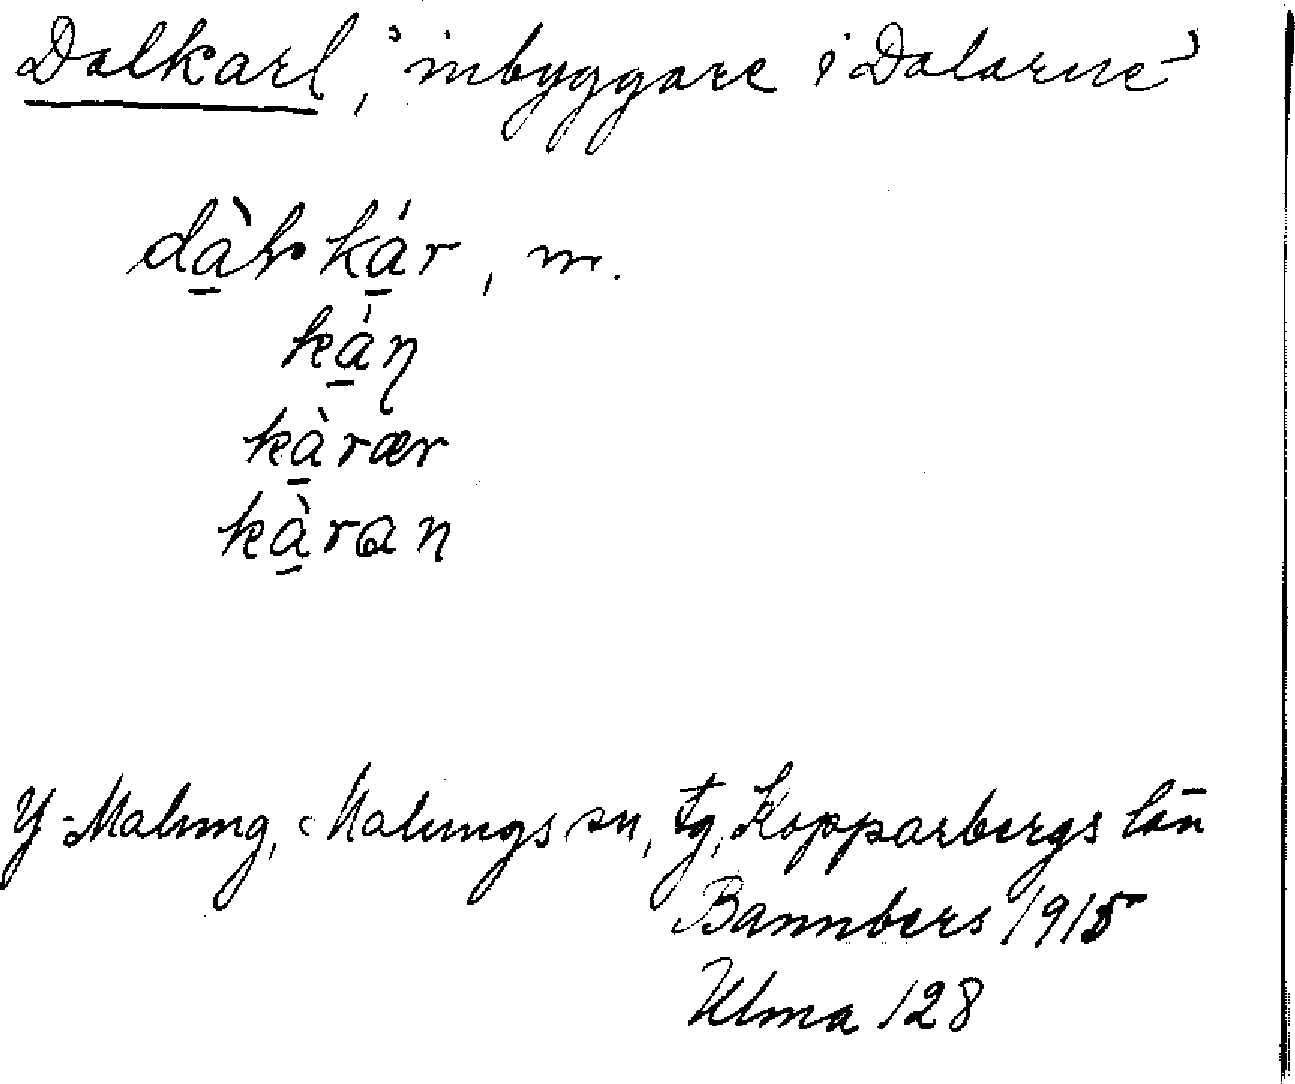 Dalkarl, 'inbyggare i Dalarne'
dàlkár, m.
káṇ
kàrær
kàran
Y. Malung, Malungs sn, tg, Kopparbergs län
Bannbers 1915
Ulma 128